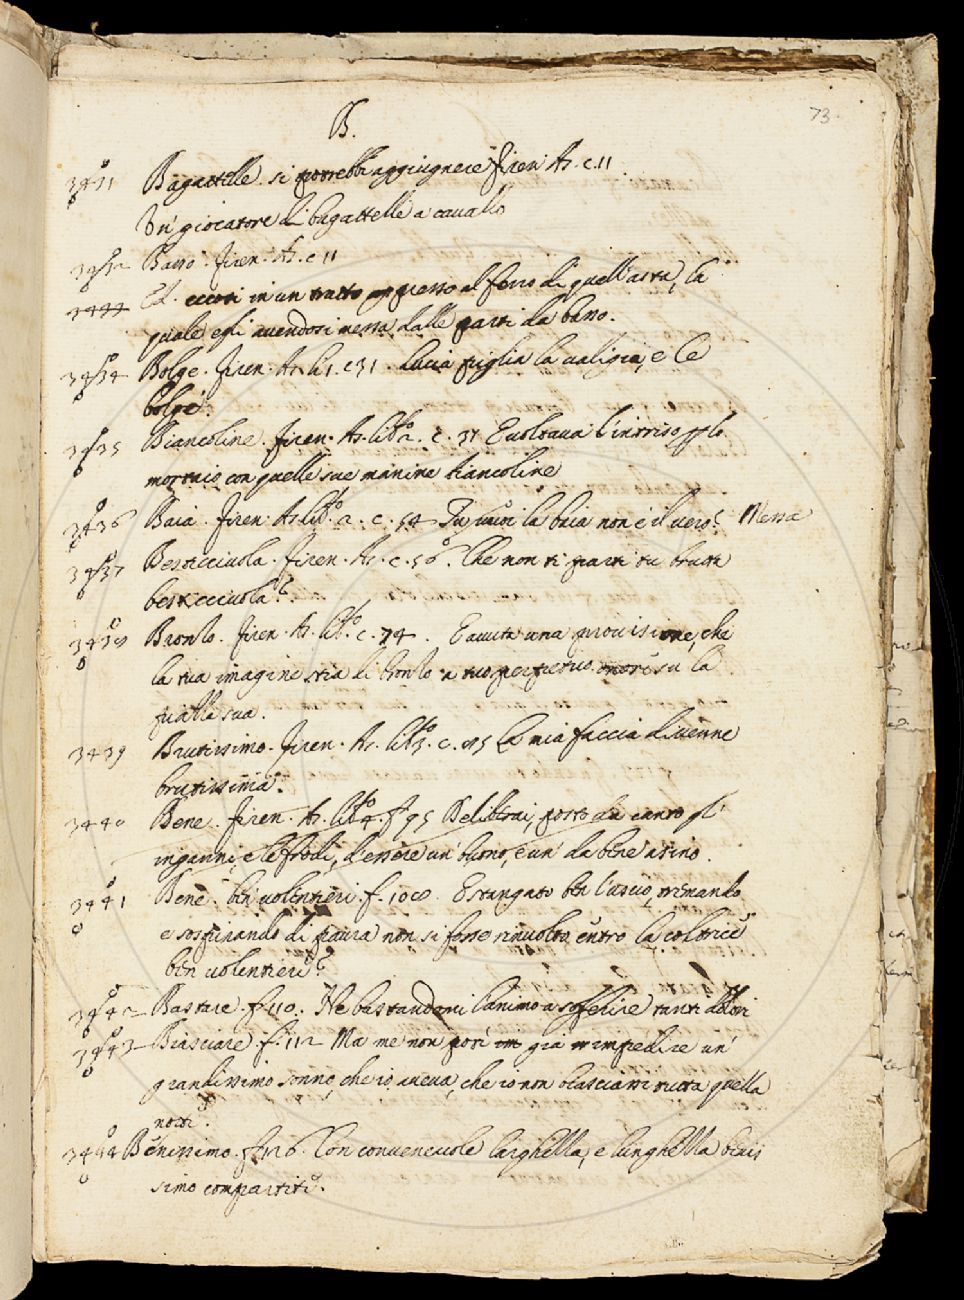 73.
B.
3431 Bagattelle. si potrebbe aggiugnere Firen. As. c. 11
Un giocatore di bagattelle a cavallo
3432 Basso. Firen. As. c. 11
3444 Ed eccoti in un tratto appresso al ferro di quell'asta, la
quale egli avendosi messa dalle parti da basso.
3434 Bolge. Firen. As. li. 1. c. 31. Lucia piglia la valigia, e le
bolge.
3435 Biancoline. Firen. As. libo. 2. c. 37 E voltava l'intriso p. lo
mortaio con quelle sue manine biancoline
3436 Baia. Firen. As. libo. 2. c. 54 Tu vuoi la baia non è il vero? Messa
3437 Besticciuola. Firen. As. c. 56. Che non ti parti tu brutta
besticciuola?
3438 Bronzo. Firen. As. libo. c. 74. E avuta una provisione, che
la tua imagine stia di bronzo a tuo perpetuo onore su la
piazza sua.
3439 Brutissimo. Firen. As. libo. 3. c. 85 La mia faccia divenne
brutissima.
3440 Bene. Firen. As. libo. 4. f. 95 Deliberai, posto da canto gl'
inganni, e le frodi, d'essere un buono, e un da bene asino.
3441 Bene. ben volentieri. f. 100 E stangato ben l'uscio, tremando
e sospirando di paura non si fosse rinvolto entro la coltrice
ben volentieri?
3442 Bastare. f. 110. Ne bastandomi l'animo a sofferire tanti dolori
3443 Biasciare. f. 112 Ma me non potè già impedire un
grandissimo sonno, che io aveva, che io non biasciassi tutta quella
notte.
3444 Benissimo. f. 126. Con convenevole larghella, e lunghella benis
simo compartiti.